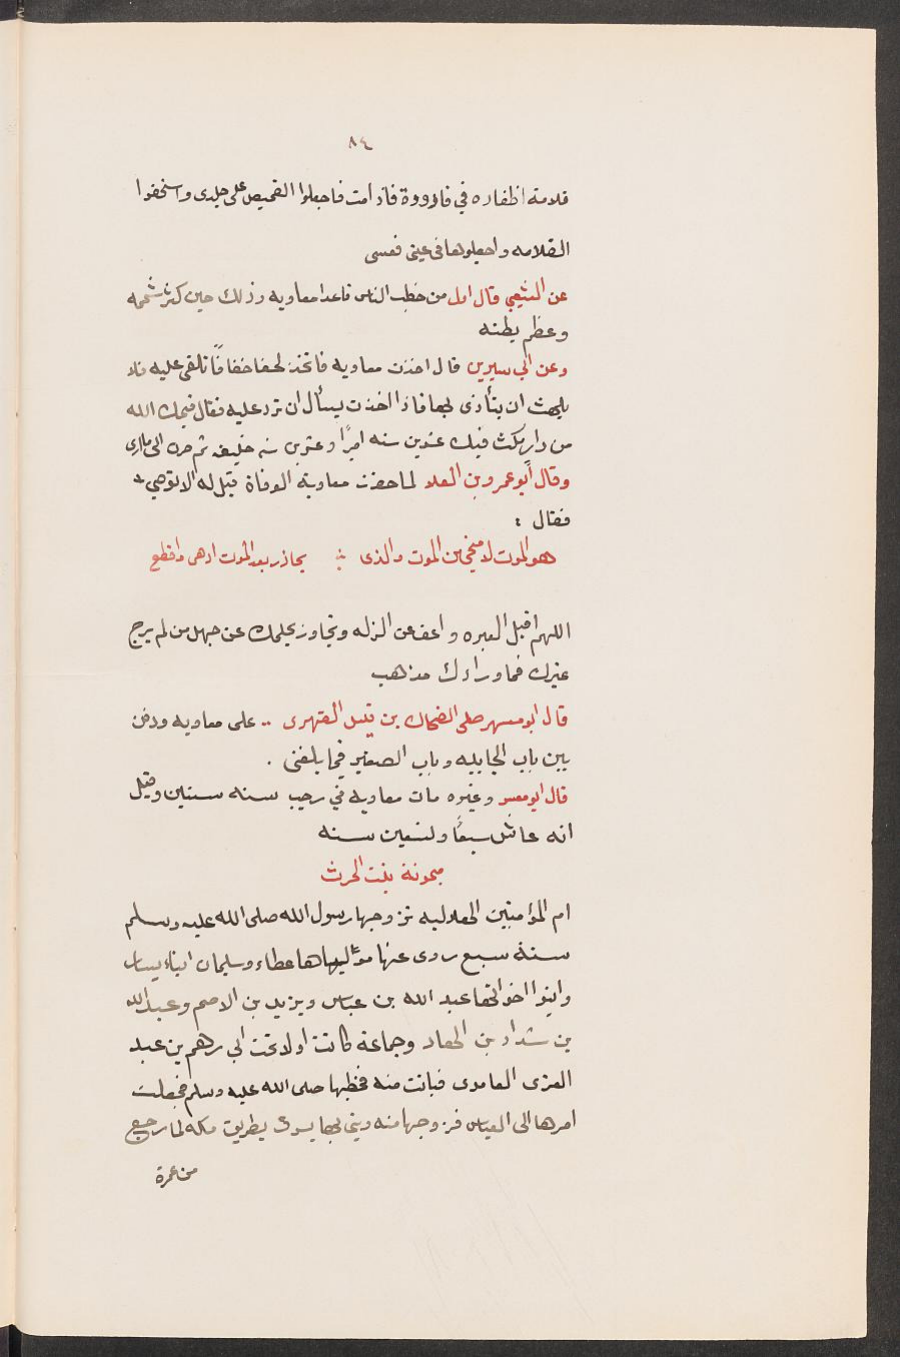 ٨٤
قلامة اظفاره في قارورة فاذا مت فاجعلوا القميص على جلدى واسحقوا
القلامه واجعلوها فى عينى فعسى
عن الشعبي قال اول من خطب الناس قاعدا معاويه وذلك حين كثر شحمه
وعظم بطنه
وعن ابي سيرين قال اخذت معاويه فاتخذ لحفا خفافًا تلقى عليه فلا
يلبث ان يتأذى بها فاذا اخذت يسأل ان ترد عليه فقال قبحك الله
من دار مكثت فيك عشرين سنه اميرًا وعشرين سنه خليفه ثم صرت الى ما ارى
وقال ابو عمرو بن العلا لما حضرت معاوية الوفاة قيل له الا توصي
فقال :
هو الموت لا منجى من الموت والذى يحاذر بعد الموت ادهى وافظع
اللهم اقبل العبره واعف عن الزله وتجاوز بحلمك عن جهل من لم يرج
غيرك فما وراءك مذهب
قال ابو مسهر صلى الضحاك بن قيس الفهرى .. على معاويه ودفن
بين باب الجابيه وباب الصغير فيما بلغنى .
قال ابو معسر وغيره مات معاويه في رجب سنه ستين وقيل
انه عاش سبعًا وسبعين سنه
ميمونة بنت الحرث
ام المؤمنين الهلاليه تزوجها رسول الله صلى الله عليه وسلم
سنة سبع روى عنها مواليها عطاء وسليمان ابناء يسار
وابنوا اخواتها عبد الله بن عباس ويزيد بن الاصم وعبد الله
بن شداد بن الهاد وجماعة كانت اولا تحت ابى رهم بن عبد
العزى العامرى فبانت منه فخطبها صلى الله عليه وسلم فجعلت
امرها الى العباس فزوجها منه وبنى بها بسرف بطريق مكه لما رجع
من عمرة